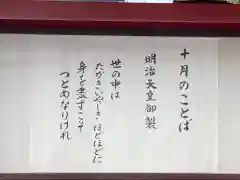 十月のことば
明治天皇御製
世の中は
たかきいやしきほどほどに
身を盡すこそ
つとめなりけれ